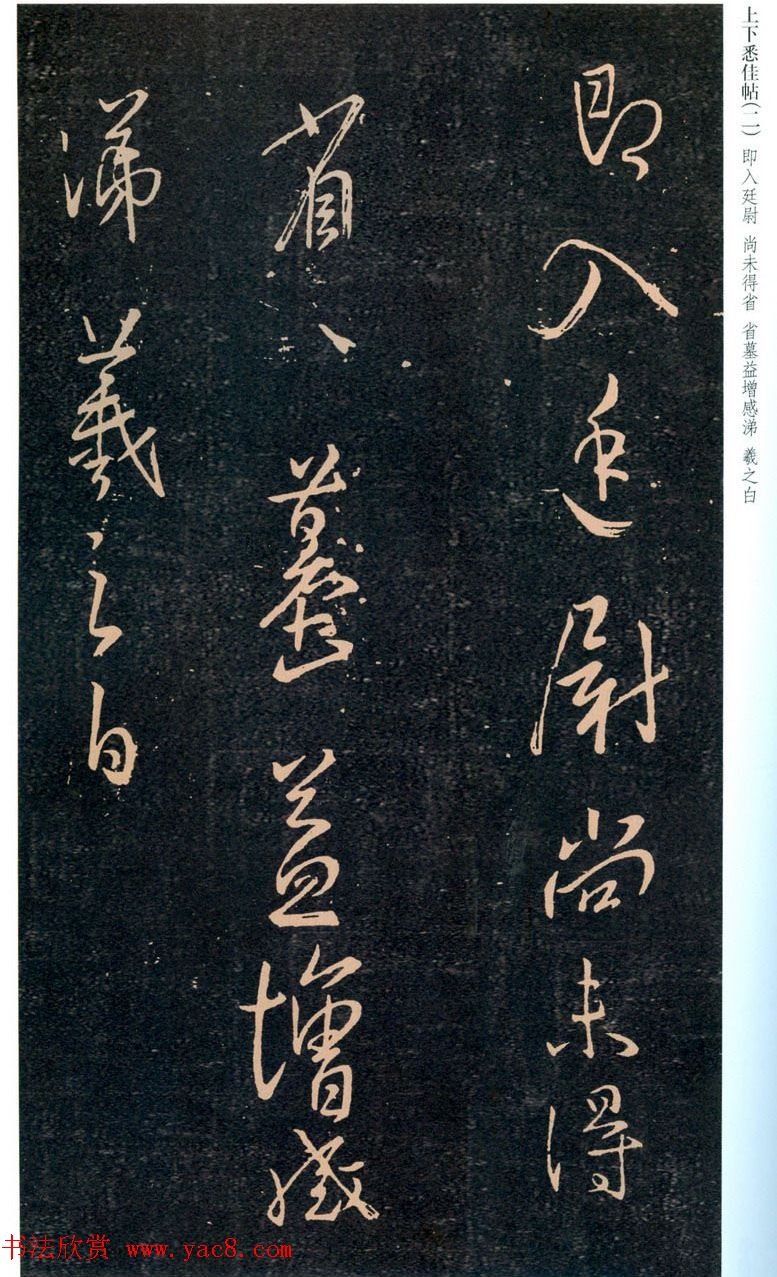 上下悉佳帖(二) 即入廷尉 尚未得省 省墓益增感涕 羲之白
即入廷尉尚未得
省〻墓益增感
涕羲之白
书法欣赏 www.yac8.com